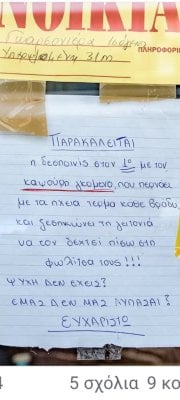 ΕΝΟΙΚΙΑ
Γκαρσονιέρα
31m
ΠΛΗΡΟΦΟΡΙΕ
ΠΑΡΑΚΑΛΕΙΤΑΙ
η δεσποινίς στον 1ο με τον
καψούρη γκόμενο, που περνάει
με τα ηχεία τέρμα κάθε βράδυ
και ξεσηκώνει τη γειτονιά
να τον δεχτεί πίσω στη
φωλίτσα τους!!!
ΨΥΧΗ ΔΕΝ ΕΧΕΙΣ?
ΕΜΑΣ ΔΕΝ ΜΑΣ ΛΥΠΑΣΑΙ?
ΕΥΧΑΡΙΣΤΩ
4 5 σχόλια 9 κο